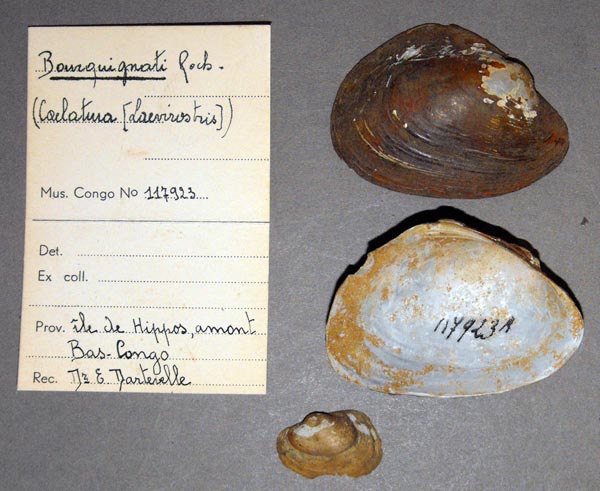 Bourguignati Roch.
(Coelatura [Laevirostris])
Mus. Congo No 117.923
Det.
Ex coll.
Prov. île de Hippos, amont
Bas-Congo
Rec. Dr E. Dartevelle
117923A